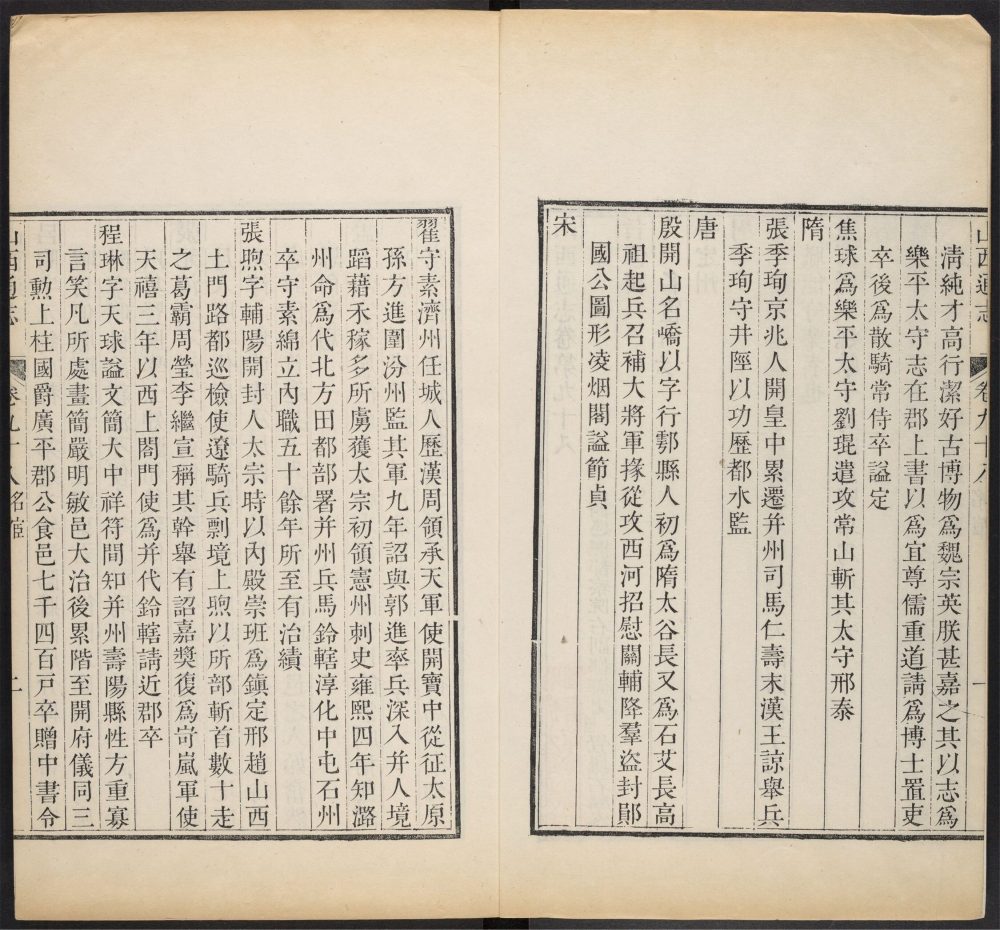 山西通志 卷九十八 一
清純才高行潔好古博物爲魏宗英朕甚嘉之其以志爲
樂平太守志在郡上書以爲宜尊儒重道請爲博士置吏
卒後爲散騎常侍卒謚定
焦球爲樂平太守劉琨遣攻常山斬其太守邢泰
隋
張季珣京兆人開皇中累遷并州司馬仁壽末漢王諒舉兵
季珣守井陘以功歷都水監
唐
殷開山名嶠以字行鄠縣人初爲隋太谷長又爲石艾長高
祖起兵召補大將軍掾從攻西河招慰關輔降羣盜封鄖
國公圖形凌烟閣謚節貞
宋
翟守素濟州任城人歷漢周領承天軍使開寶中從征太原
孫方進圍汾州監其軍九年詔與郭進率兵深入并人境
蹈藉禾稼多所虜獲太宗初領憲州刺史雍熙四年知潞
州命爲代北方田都部署并州兵馬鈐轄淳化中屯石州
卒守素綿立內職五十餘年所至有治績
張煦字輔陽開封人太宗時以內殿崇班爲鎮定邢趙山西
土門路都巡檢使遼騎兵剽境上煦以所部斬首數十走
之葛霸周瑩李繼宣稱其幹舉有詔嘉獎復爲岢嵐軍使
天禧三年以西上閤門使爲并代鈐轄請近郡卒
程琳字天球謚文簡大中祥符間知并州壽陽縣性方重寡
言笑凡所處畫簡嚴明敏邑大治後累階至開府儀同三
司勲上柱國爵廣平郡公食邑七千四百戸卒贈中書令
山西通志 卷九十八名宦 二